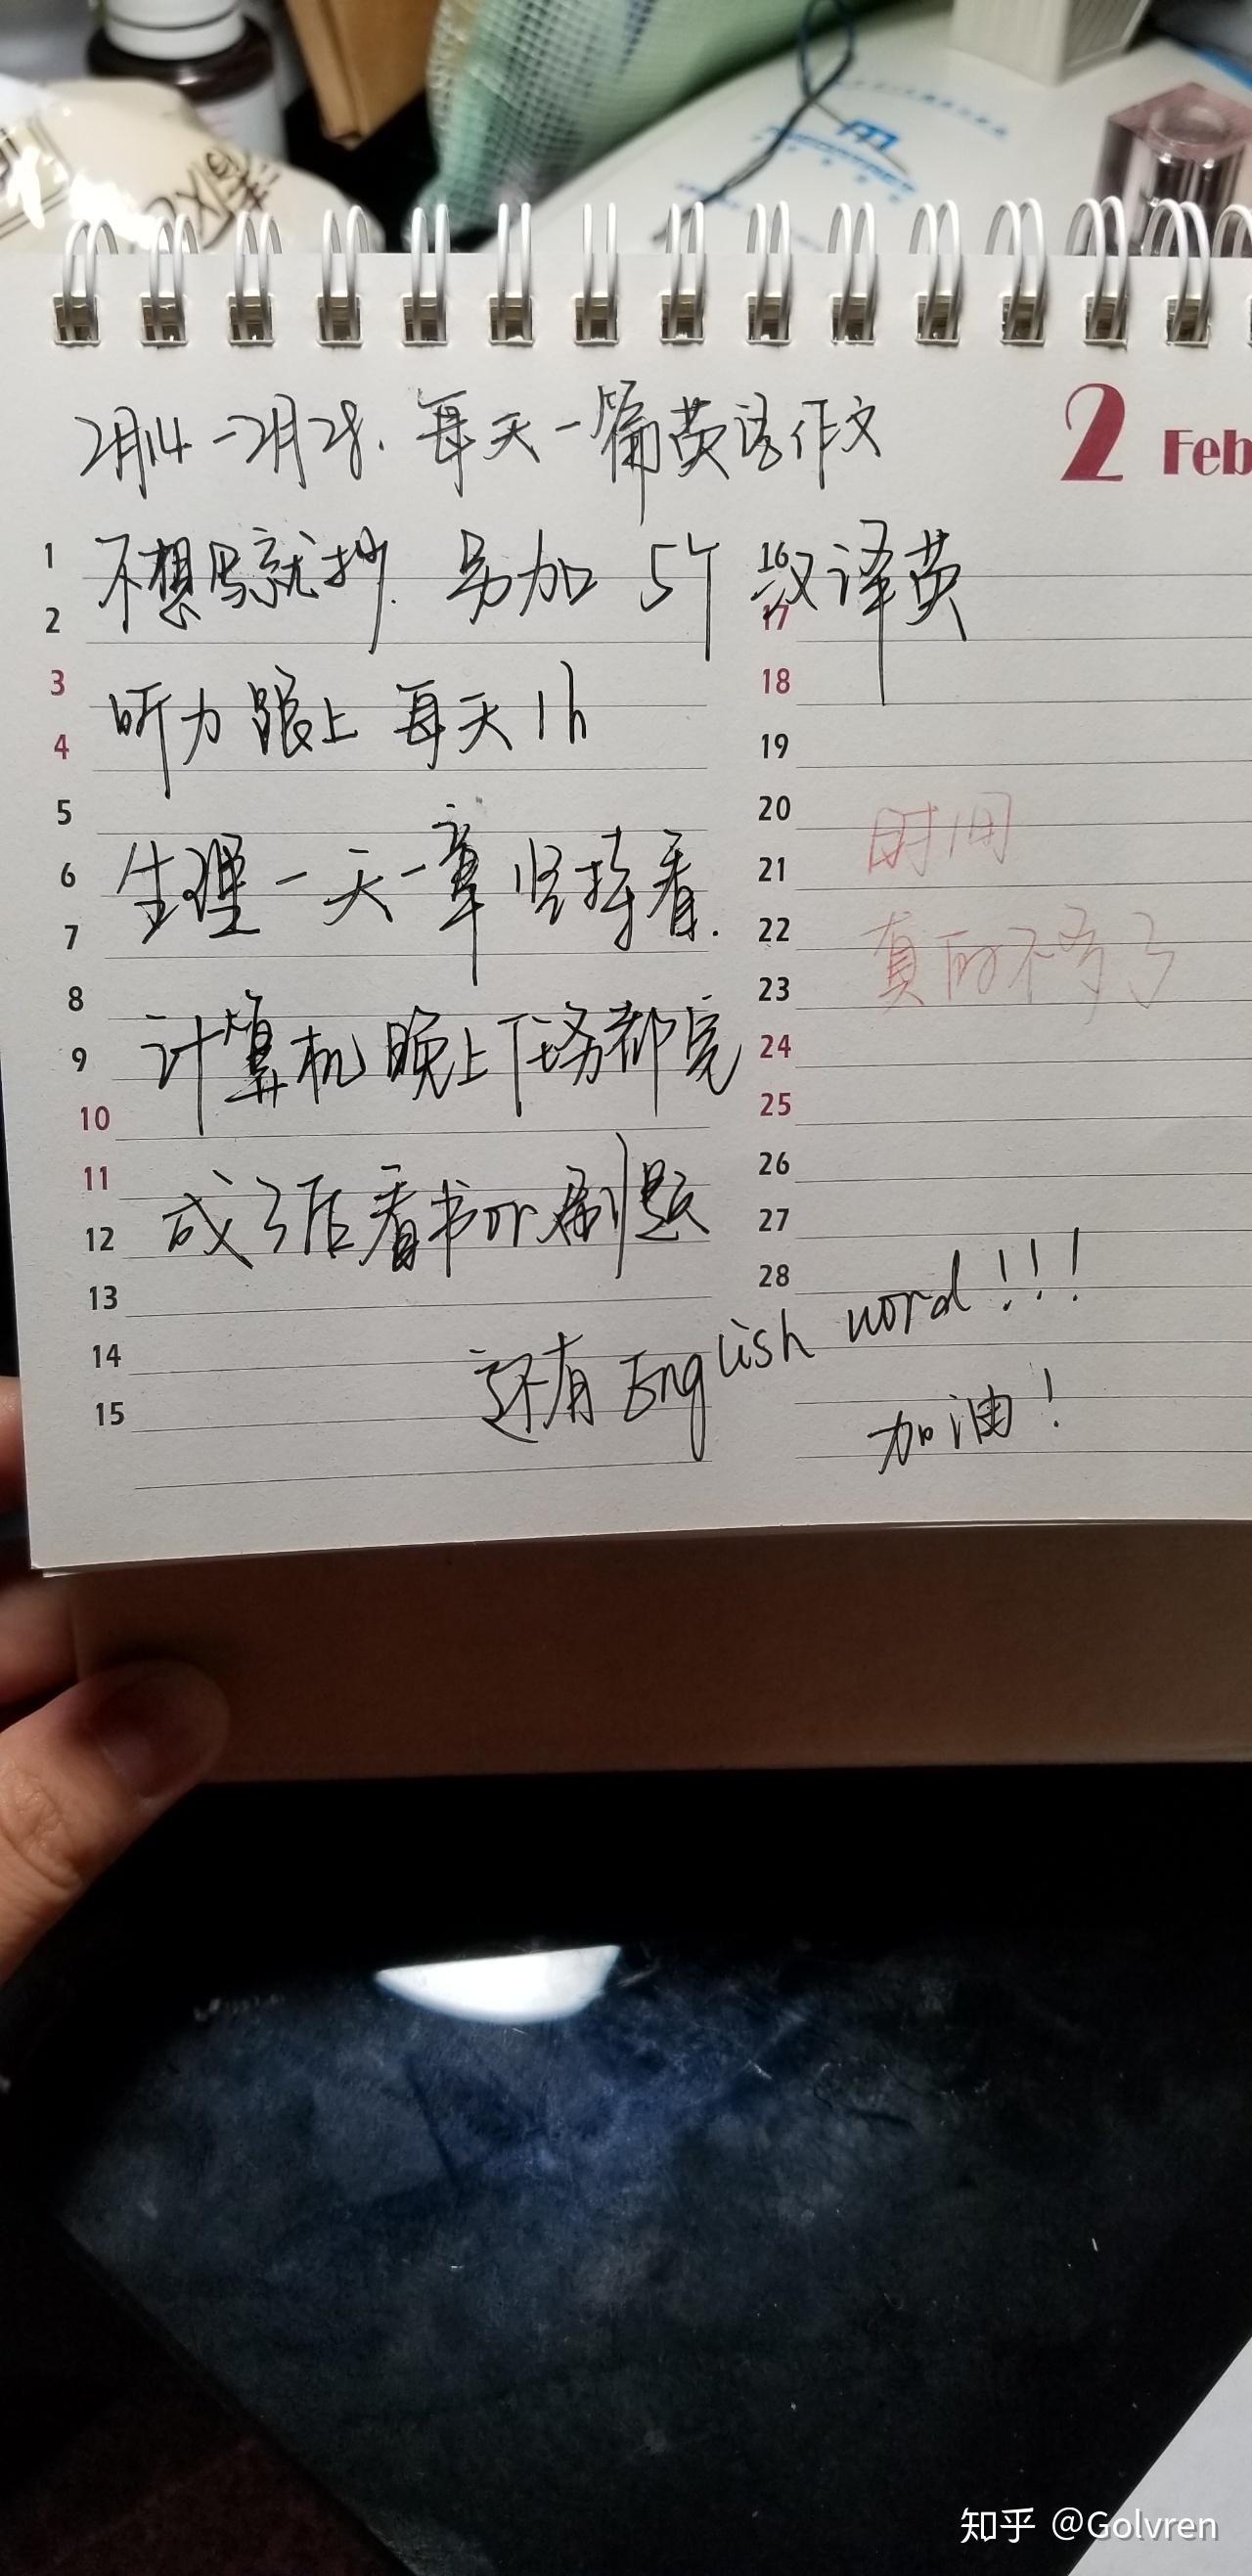 2月14-2月28.每天一篇英语作文
2 Feb
不想写就抄.另加 5个 汉译英
听力跟上 每天1h
生理一天一章坚持看.
计算机 晚上任务都完
成了后看书or刷题
还有English word!!!
加油!
时间
真的不多了
1
2
3
4
5
6
7
8
9
10
11
12
13
14
15
16
17
18
19
20
21
22
23
24
25
26
27
28
知乎 @Golvren